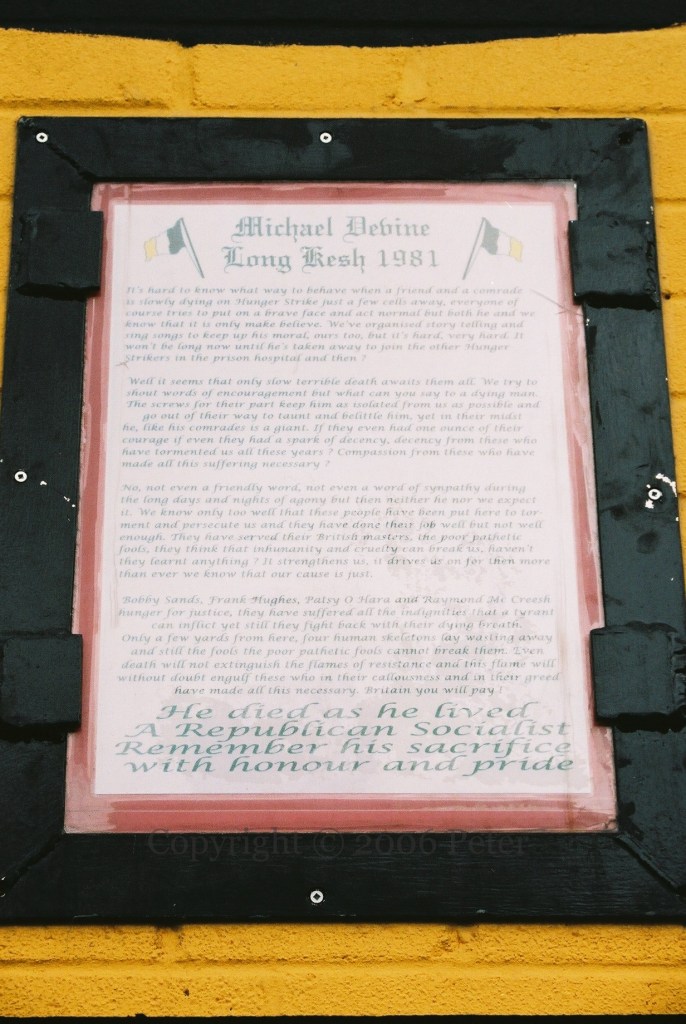 Michael Devine
Long Kesh 1981
It's hard to know what way to behave when a friend and a comrade
is slowly dying on Hunger Strike just a few cells away, everyone of
course tries to put on a brave face and act normal but both he and we
know that it is only make believe. We've organised story telling and
sing songs to keep up his moral, ours too, but it's hard, very hard. It
won't be long now until he's taken away to join the other Hunger
Strikers in the prison hospital and then ?
Well it seems that only slow terrible death awaits them all. We try to
shout words of encouragement but what can you say to a dying man.
The screws for their part keep him as isolated from us as possible and
go out of their way to taunt and belittle him, yet in their midst
he, like his comrades is a giant. If they even had one ounce of their
courage if even they had a spark of decency, decency from these who
have tormented us all these years ? Compassion from these who have
made all this suffering necessary ?
No, not even a friendly word, not even a word of synpathy during
the long days and nights of agony but then neither he nor we expect
it. We know only too well that these people have been put here to tor-
ment and persecute us and they have done their job well but not well
enough. They have served their British masters, the poor pathetic
fools, they think that inhumanity and cruelty can break us, haven't
they learnt anything ? It strengthens us, it drives us on for then more
than ever we know that our cause is just.
Bobby Sands, Frank Hughes, Patsy O Hara and Raymond Mc Creesh
hunger for justice, they have suffered all the indignities that a tyrant
can inflict yet still they fight back with their dying breath.
Only a few yards from here, four human skeletons lay wasting away
and still the fools the poor pathetic fools cannot break them. Even
death will not extinguish the flames of resistance and this flame will
without doubt engulf these who in their callousness and in their greed
have made all this necessary. Britain you will pay !
He died as he lived
A Republican Socialist
Remember his sacrifice
with honour and pride
Copyright © 2006 Peter